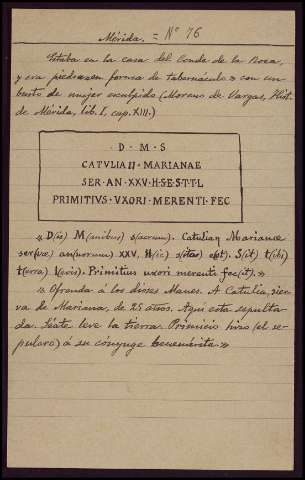 Mérida. = Nº 76
Estaba en la casa del Conde de la Roca,
y era piedra «en forma de tabernáculo» con un
busto de mujer esculpido (Moreno de Vargas, Hist.
de Mérida, lib. I, cap. XIII.)
D · M · S
CATVLIAII · MARIANAE
SER · AN · XXV · H · S · E · S · T · T · L
PRIMITIVS · VXORI · MERENTI · FEC
« D(is) M(anibus) s(acrum). Marianae
ser(vae) an(norum) XXV. H(ic) s(itas) e(st). S(it) t(ibi)
t(erra) l(evis). Primitius uxori merenti fec(it). »
« Ofrenda á los dioses Manes. A Catulia, sier-
va de Mariana, de 25 años. Aquí está sepulta-
da. Séate leve la tierra. hizo (el se-
pulcro) á su cónyuge benemérita. »